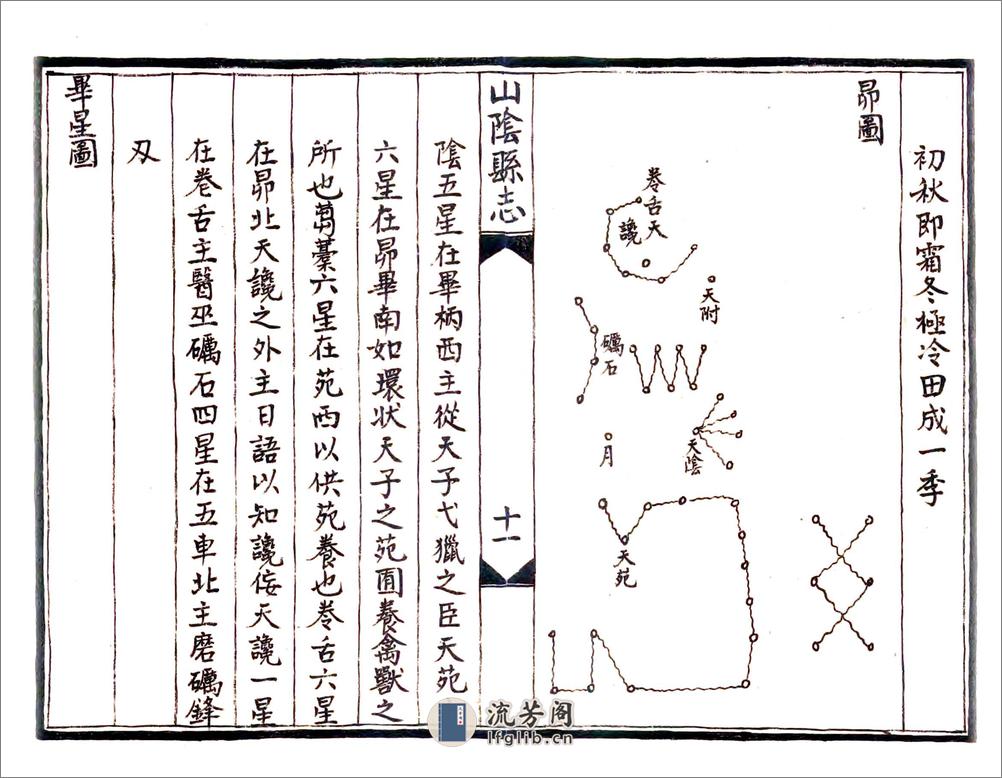 初秋即霜冬極冷田成一季
昴圖
卷舌
天讒
天附
礪石
天陰
月
天苑
山陰縣志
十一
陰五星在畢柄西主從天子弋獵之臣天苑
六星在昴畢南如環狀天子之苑囿養禽獸之
所也蒭藁六星在苑西以供苑養也卷舌六星
在昴北天讒之外主日語以知讒侫天讒一星
在卷舌主醫巫礪石四星在五車北主磨礪鋒
刃
畢星圖
流芳阁
lfglib.cn